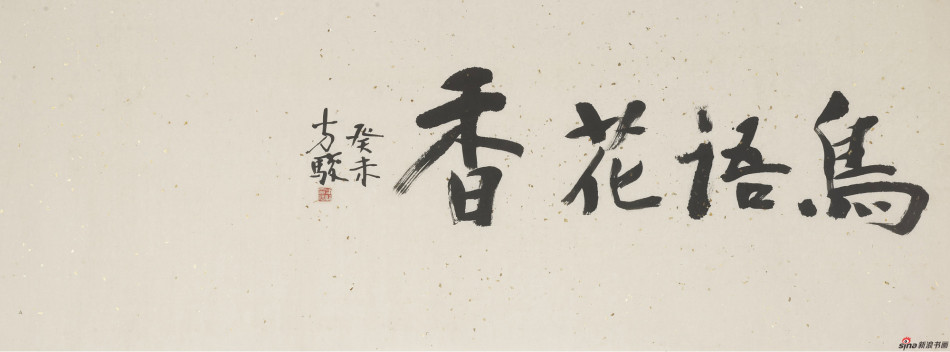 鳥语花香
癸未
方駿
sina 新浪书画